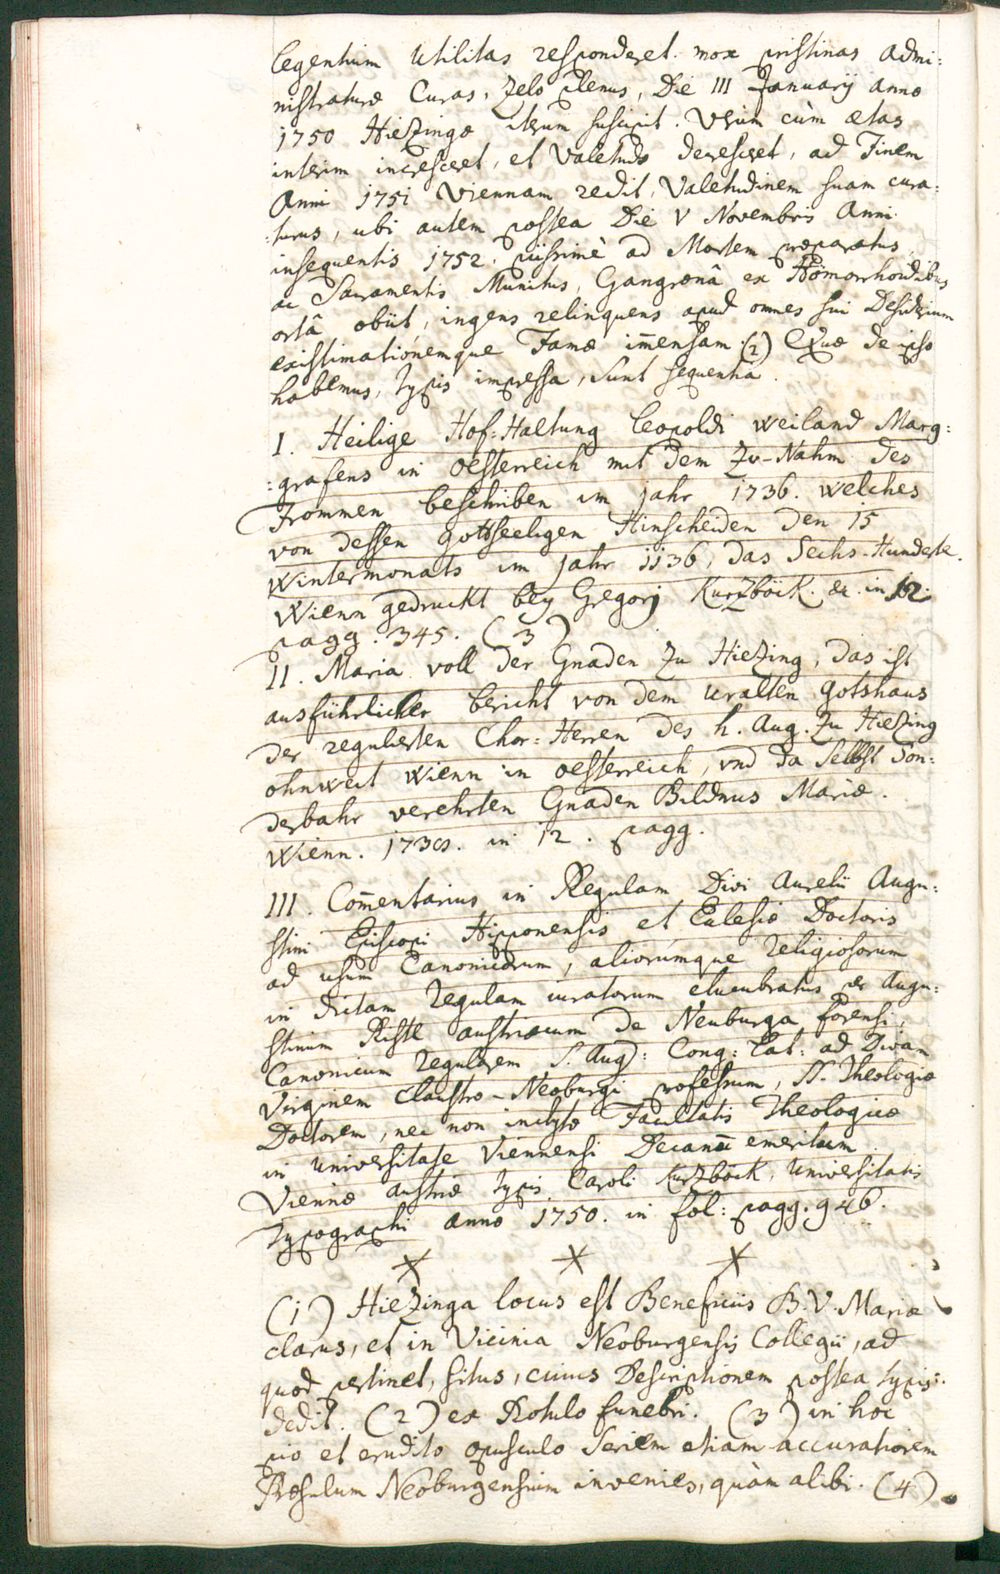 legentium Utilitas responderet. mox pristinas admi:
nistraturæ Curas, Zelo plenus, Die III Januarij anno
1750 Hiezingæ iterum suscepit. Verùm cùm ætas
interim incresceret, et Valetudo decresceret, ad Finem
Anni 1751 Viennam redit, Valetudinem suam cura:
:turus, ubi autem postea Die V Novembris Anni
insequentis 1752. piissimè ad Mortem præparatus,
ac Sacramentis Munitus, Gangrænâ ex Hömorrhoidibus
ortâ obiit, ingens relinquens apud omnes sui Desiderium
existimationemque Famæ im̄ensam. (2) Quæ de ipso
habemus, typis impressa, sunt sequentia.
I. Heilige Hof=Haltung Leopoldi weiland Marg:
:grafens in Oesterreich mit dem Zu-Nahm des
Frommen beschriben im jahr 1736. welches
von dessen gottseeligen Hinscheiden den 15
Wintermonats im jahr 1136, das Sechs-Hunderte.
Wienn gedruckt bey Gregorj Kurzböck. &. in 12.
pagg. 345. (3)
II. Maria voll der Gnaden zu Hiezing, das ist
ausführlicher bericht von dem uralten gotshaus
der regulirten Chor=Herren des h. Aug. zu Hiezing
ohnweit Wienn in oesterreich, und da selbst son:
derbahr verehrten Gnaden Bildnus Mariæ.
Wienn. in 12. pagg.
III. Com̄entarius in Regulam Divi Aurelii Augu:
stini Episcopi Hipponensis et Eclesiæ Doctoris
ad usum Canonicorum, aliorumque religiosorum
in dictam regulam iuratorum elucubratus per Augu:
stinum Ristl austriacum de Neuburga forensi,
Canonicum regularem S. Aug: Cong: Lat: ad Divam
Virginem Claustro-Neoburgi professum, SS. Theologiæ
Doctorem, nec non inclytæ Facultatis Theologicæ
in Universitate Viennensi Decanū emeritum
Viennæ austriæ typis Caroli Kurzböck, Universitatis
Typographi anno 1750. in fol: pagg. 946.
(1) Hiezinga locus est Beneficiis B. V. Mariæ
clarus, et in Vicinia Neoburgensis Collegii, ad
quod pertinet, situs, cuius Descriptionem postea typis:
dedit. (2) ex Rotulo funebri. (3) in hoc
pio et erudito opusculo Seriem etiam accuratiorem
Præsulum Neoburgensium invenies, quàm alibi. (4)